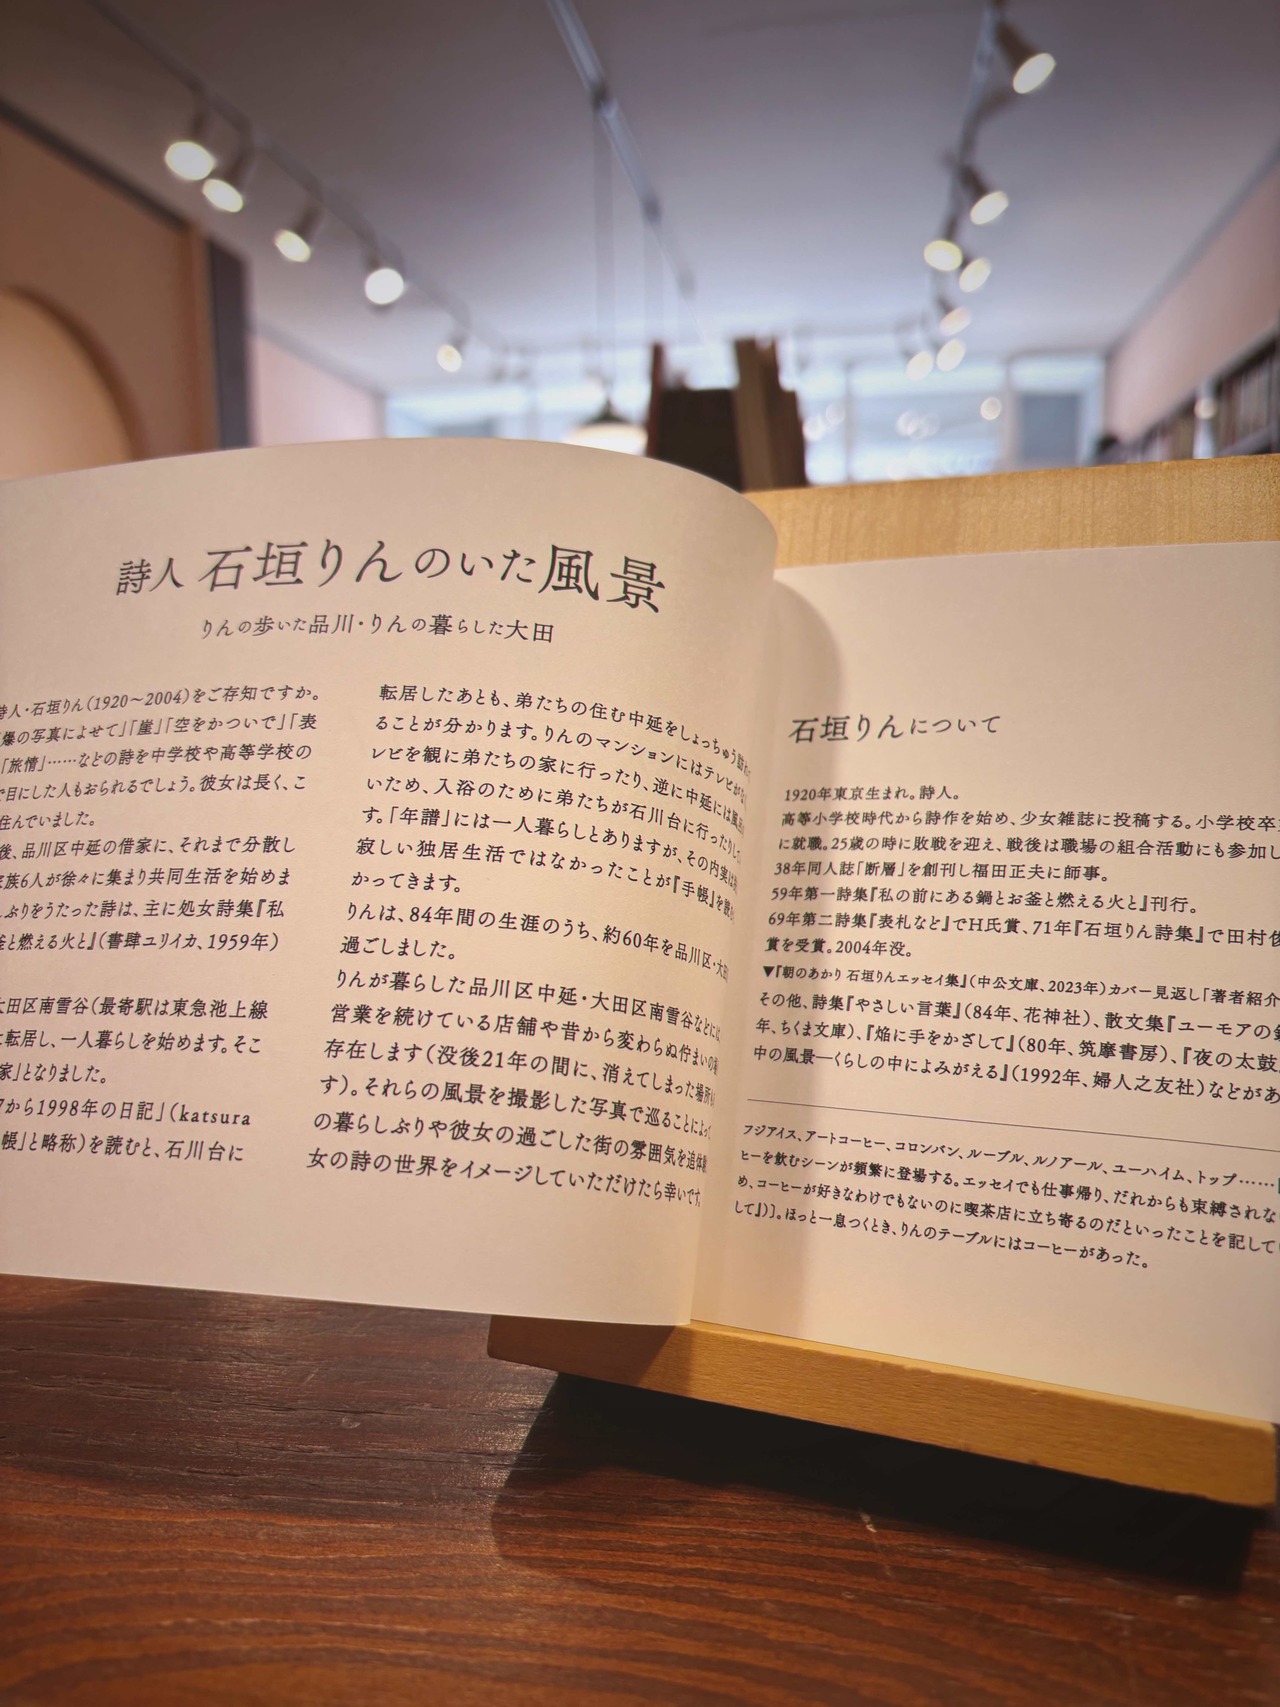 詩人 石垣りんのいた風景
りんの歩いた品川・りんの暮らした大田
詩人・石垣りん(1920〜2004)をご存知ですか。
爆の写真によせて」「崖」「空をかついで」「表
「旅情」……などの詩を中学校や高等学校の
で目にした人もおられるでしょう。彼女は長く、こ
住んでいました。
後、品川区中延の借家に、それまで分散し
家族6人が徐々に集まり共同生活を始めま
しぶりをうたった詩は、主に処女詩集『私
釜と燃える火と』(書肆ユリイカ、1959年)
大田区南雪谷(最寄駅は東急池上線
に転居し、一人暮らしを始めます。そこ
家」となりました。
から1998年の日記」(katsura
帳」と略称)を読むと、石川台に
転居したあとも、弟たちの住む中延をしょっちゅう訪れて
ることが分かります。りんのマンションにはテレビがな
レビを観に弟たちの家に行ったり、逆に中延には風呂
いため、入浴のために弟たちが石川台に行ったりし
す。「年譜」には一人暮らしとありますが、その内実は
寂しい独居生活ではなかったことが『手帳』を読
かってきます。
りんは、84年間の生涯のうち、約60年を品川区・大田
過ごしました。
りんが暮らした品川区中延・大田区南雪谷などには
営業を続けている店舗や昔から変わらぬ佇まいの
存在します(没後21年の間に、消えてしまった場所も
す)。それらの風景を撮影した写真で巡ることによって
の暮らしぶりや彼女の過ごした街の雰囲気を追体験
女の詩の世界をイメージしていただけたら幸いです。
石垣りんについて
1920年東京生まれ。詩人。
高等小学校時代から詩作を始め、少女雑誌に投稿する。小学校卒
に就職。25歳の時に敗戦を迎え、戦後は職場の組合活動にも参加し
38年同人誌「断層」を創刊し福田正夫に師事。
59年第一詩集『私の前にある鍋とお釜と燃える火と』刊行。
69年第二詩集『表札など』でH氏賞、71年『石垣りん詩集』で田村俊
賞を受賞。2004年没。
▼『朝のあかり 石垣りんエッセイ集』(中公文庫、2023年)カバー見返し「著者紹介
その他、詩集『やさしい言葉』(84年、花神社)、散文集『ユーモアの鎖
年、ちくま文庫)、『焔に手をかざして』(80年、筑摩書房)、『夜の太鼓
中の風景―くらしの中によみがえる』(1992年、婦人之友社)などがあ
フジアイス、アートコーヒー、コロンバン、ルーブル、ルノアール、ユーハイム、トップ……
ヒーを飲むシーンが頻繁に登場する。エッセイでも仕事帰り、だれからも束縛されな
め、コーヒーが好きなわけでもないのに喫茶店に立ち寄るのだといったことを記して
して』)]。ほっと一息つくとき、りんのテーブルにはコーヒーがあった。